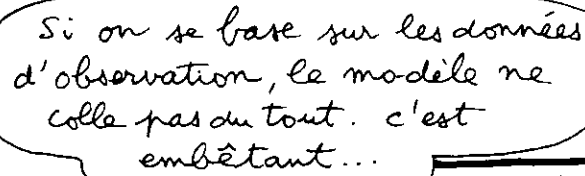 Si on se base sur les données
d'observation, le modèle ne
colle pas du tout. c'est
embêtant...